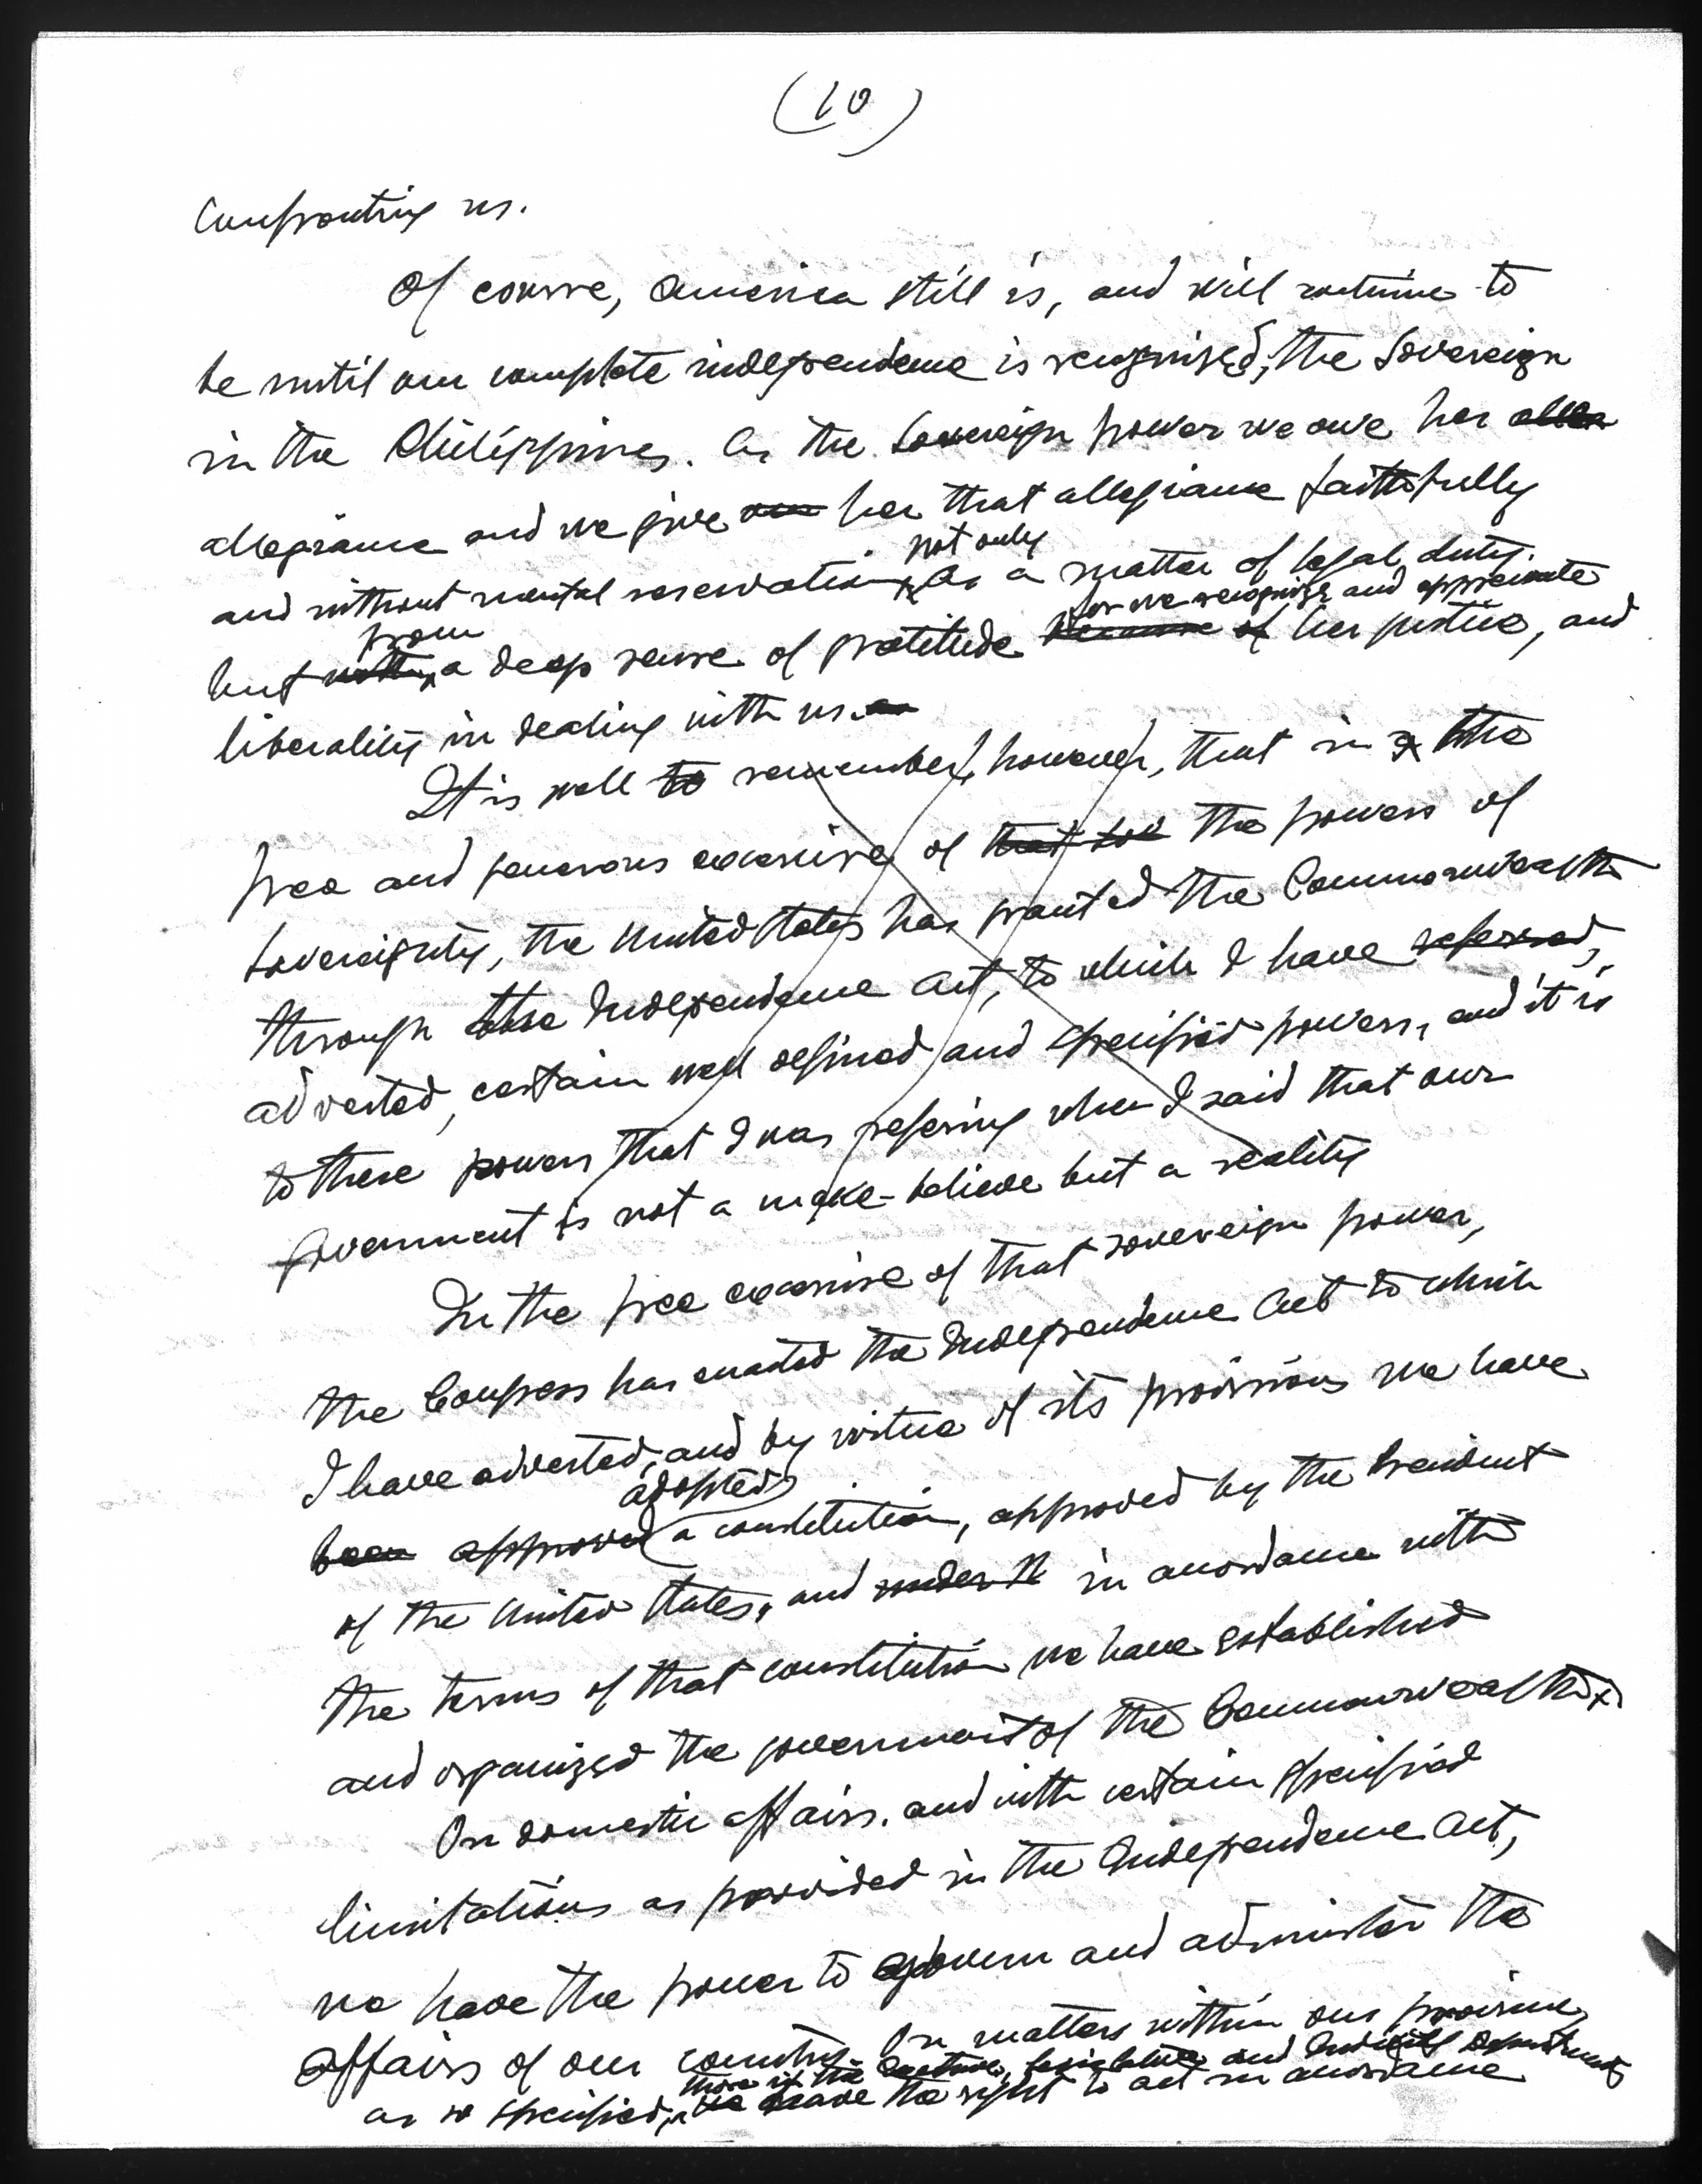 (10)
confronting us.
Of course, America still is, and will continue to
be until our complete independence is recognized, the Sovereign
in the Philippines. As the Sovereign power we owe her allea
allegiance and we give our her that allegiance faithfully
not only
and without mental reservation, as a matter of legal duty.
from
for we recognize and appreciate
but with a deep sense of gratitude because of her justice, and
liberality in dealing with us.
It is well to remember, however, that in the
free and generous exercise of that sov the powers of
sovereignty, the United States has granted the Commonwealth
through the Independence Act, to which I have referred,
adverted, certain well defined and specified powers, and it is
to these powers that I was refering when I said that our
government is not a make-believe but a reality
In the free exercise of that sovereign power,
the Congress has enacted the Independence Act to which
I have adverted, and by virtue of its provisions we have
adopted
been approved a constitution, approved by the President
of the United States, and under it in accordance with
the terms of that constitution we have established
and organized the government of the Commonwealth.
On domestic affairs, and with certain specified
limitations as provided in the Independence Act,
we have the power to govern and administer the
affairs of our country. On matters within our province,
there is the legislative and Judicial Departments
as so specified, we have the right to act in accordance